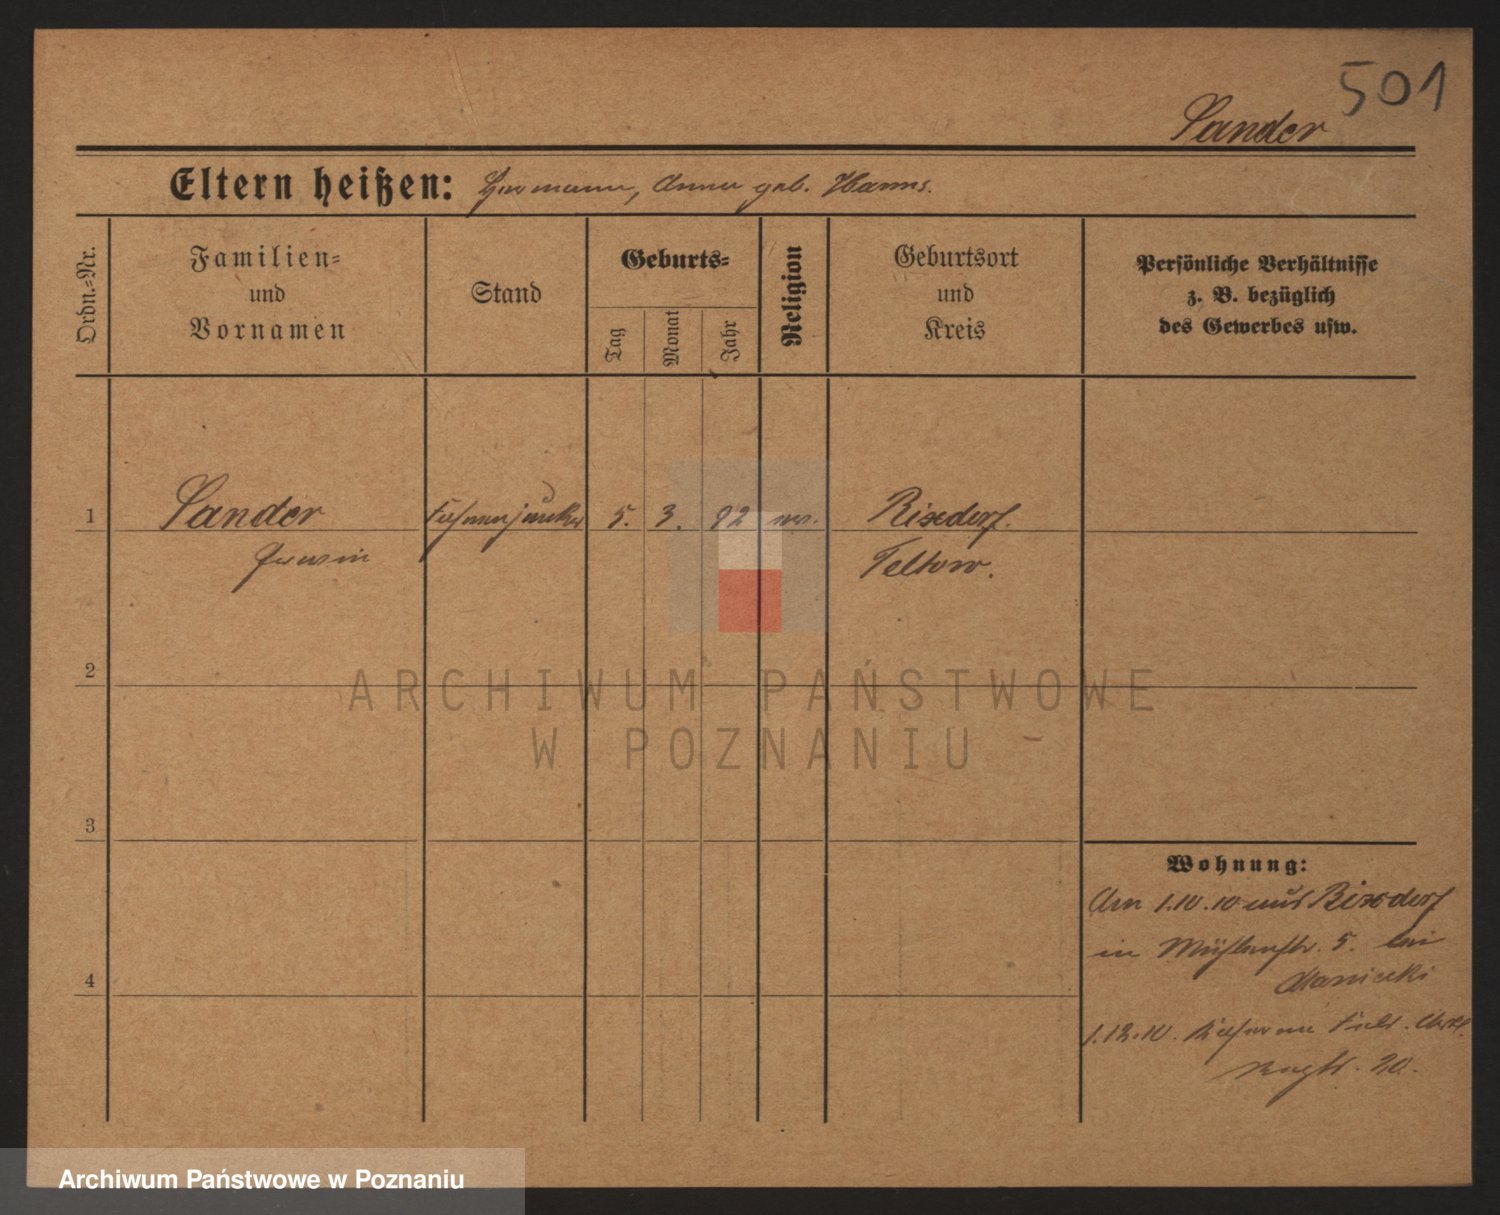 501
Sander
Eltern heißen: Hermann, Anna geb. Harms.
Ordn.=Nr.
Familien=
und
Vornamen
Stand
Geburts=
Tag
Monat
Jahr
Religion
Geburtsort
und
Kreis
Persönliche Verhältnisse
z. B. bezüglich
des Gewerbes usw.
1 Sander Fahnenjunker 5. 3. 92 ev. Rixdorf.
Erwin Teltow.
2
3
4
Wohnung:
Am 1.10.10 aus Rixdorf
in Mühlenstr. 5. bei
1.12.10. Kaserne Feld. Art.
Regts. 20.
ARCHIWUM PAŃSTWOWE
W POZNANIU
Archiwum Państwowe w Poznaniu